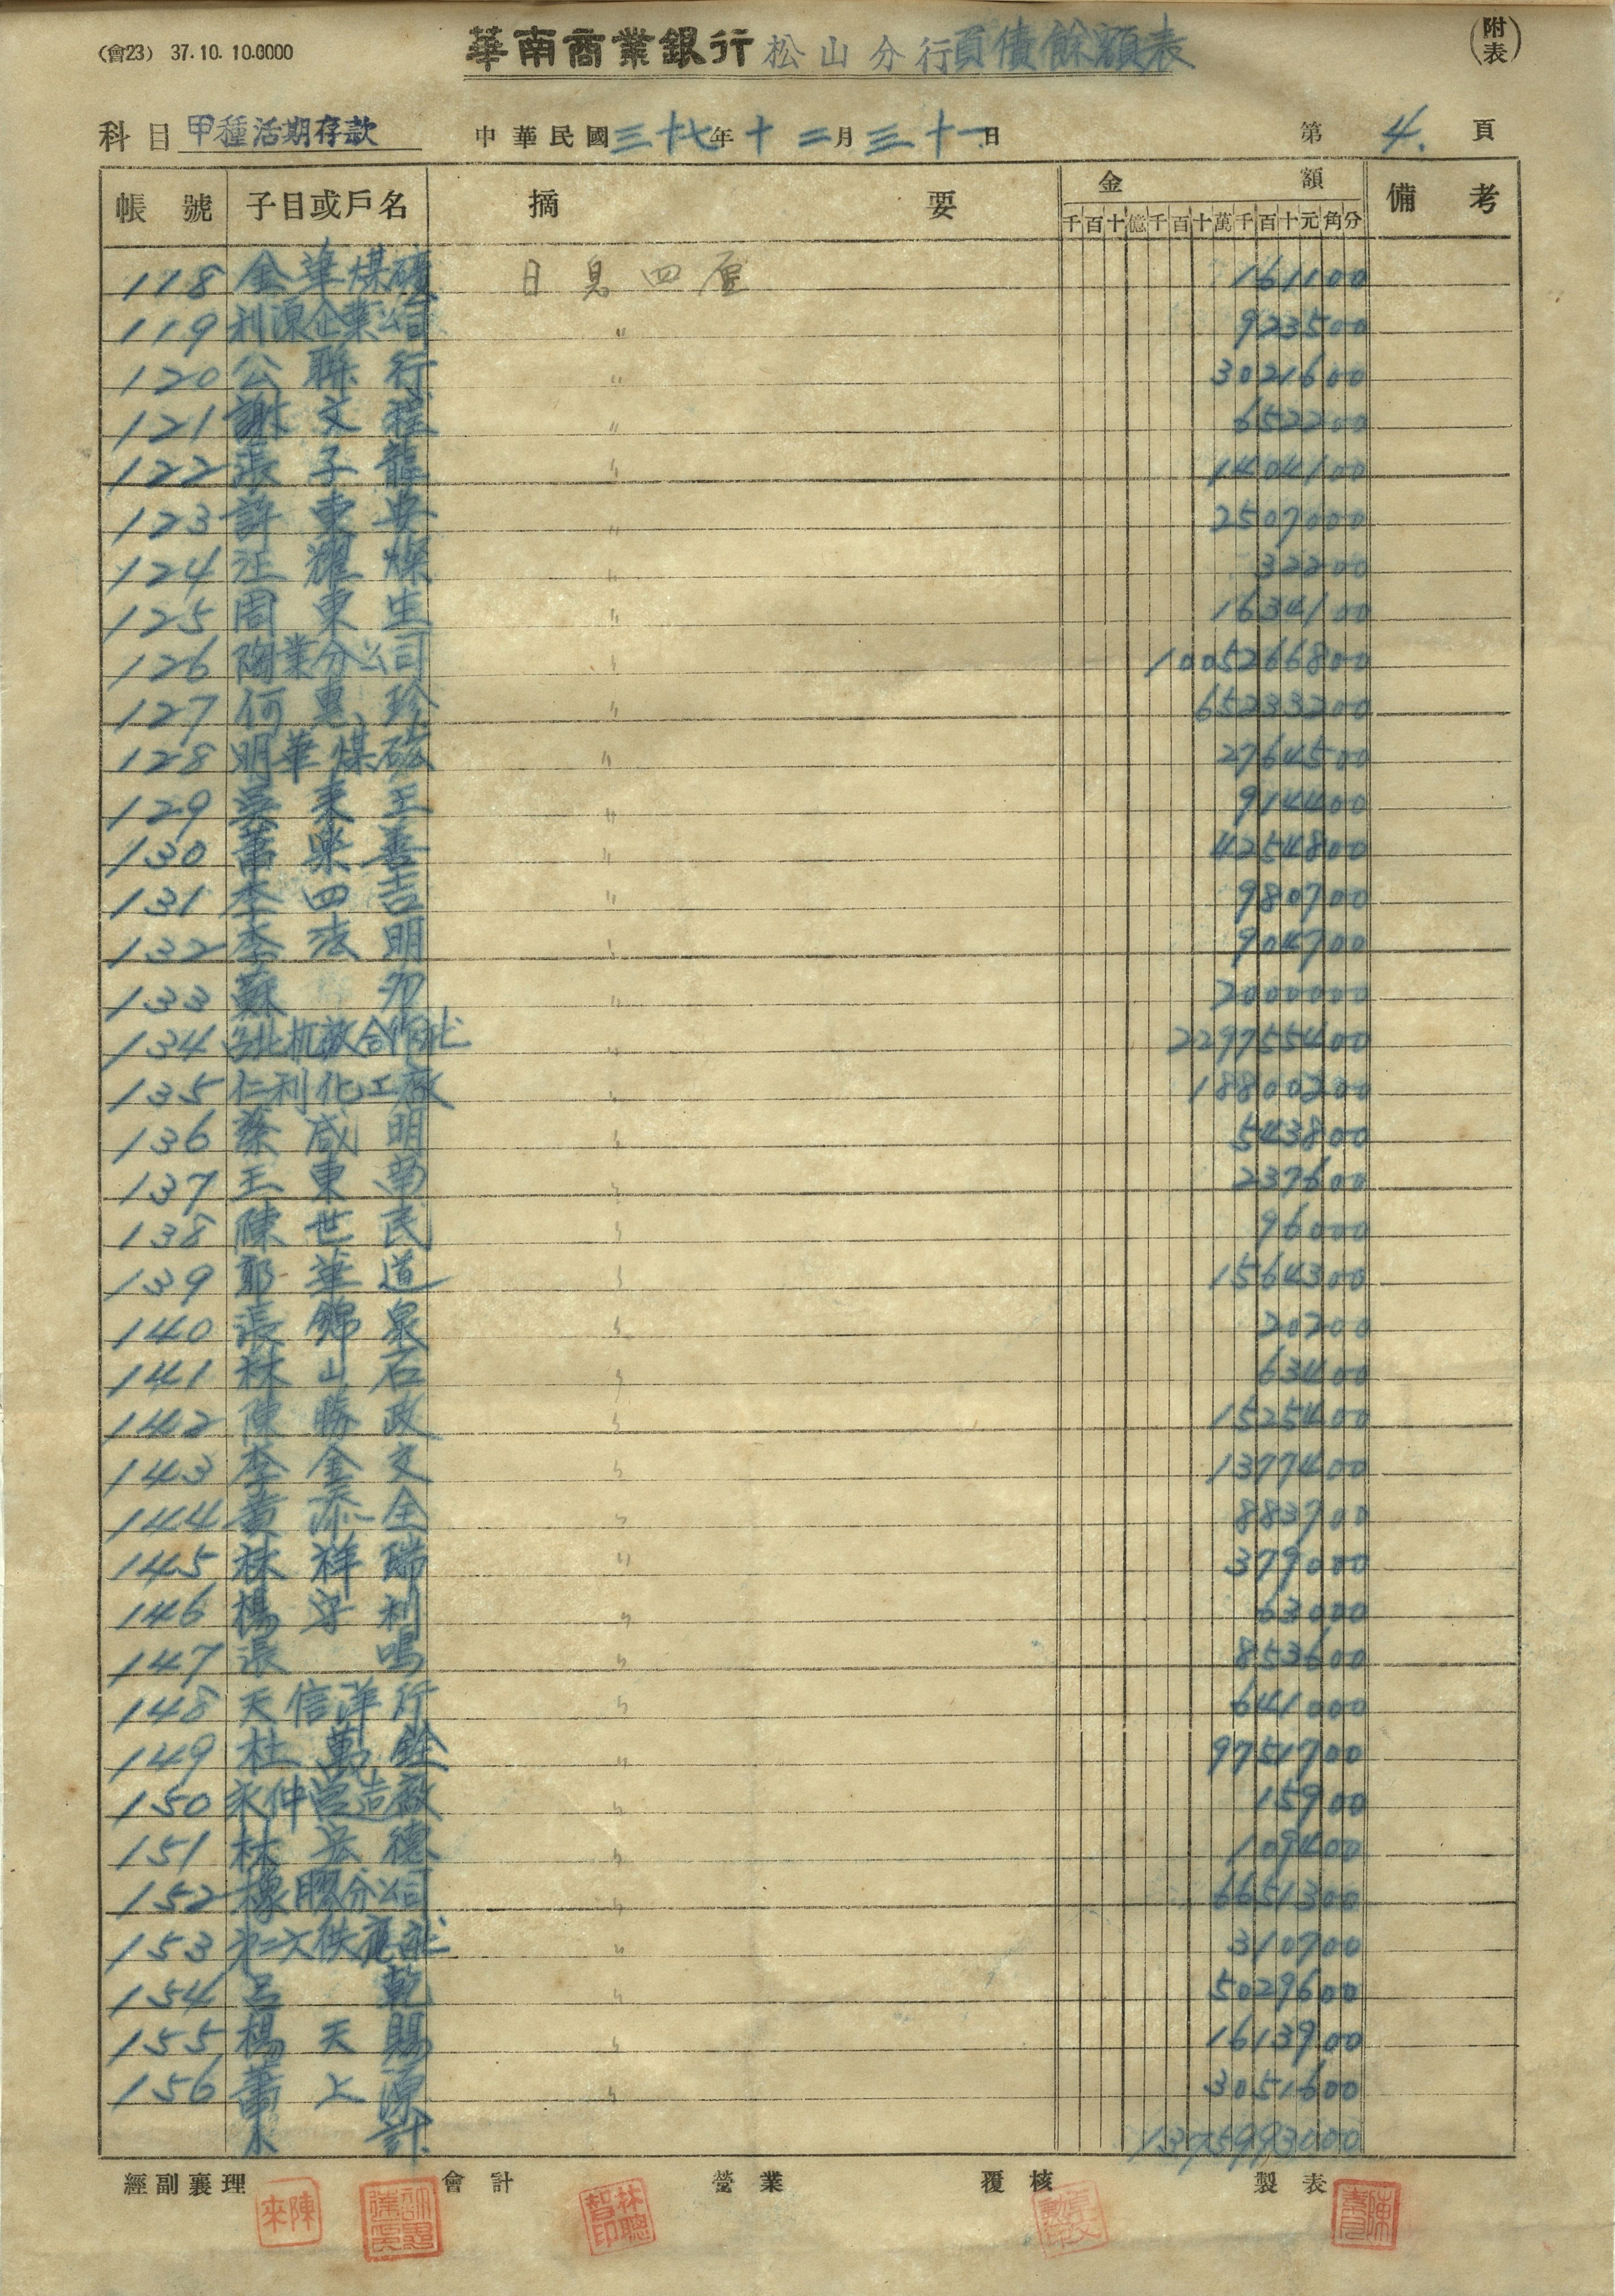 (會23) 37.10.10.6000
華南商業銀行松山分行負債餘額表
(附表)
科目 甲種活期存款 中華民國三十七年十二月三十一日 第4.頁
帳號 子目或戶名 摘要 金額 備考
千百十億千百十萬千百十元角分
118 金華煤礦 日息四厘 161100
119 利源企業公司 〃 923500
120 公聯行 〃 3021600
121 謝文程 〃 652200
122 張子龍 〃 1404100
123 許東興 〃 2507000
124 汪耀燦 〃 32200
125 周東生 〃 1634100
126 陶業分公司 〃 1005266800
127 何惠珍 〃 65233200
128 明華煤礦 〃 2764500
129 吳來王 〃 914400
130 蕭樂善 〃 4254800
131 李四吉 〃 980700
132 李法明 〃 904700
133 蘇 〃 2000000
134 合作社 〃 229755400
135 仁利化工廠 〃 18800200
136 蔡咸明 〃 543800
137 王東南 〃 237600
138 陳世民 〃 96000
139 鄭華道 〃 1564300
140 張錦泉 〃 20200
141 林山石 〃 63400
142 陳勝政 〃 1525400
143 李金文 〃 1377400
144 黃添全 〃 883900
145 林祥瑞 〃 379000
146 楊守利 〃 63000
147 張鳴 〃 853600
148 天信洋行 〃 641000
149 杜萬銓 〃 9751700
150 永仲營造廠 〃 15900
151 林宗德 〃 109400
152 橡膠分公司 〃 6651300
153 第二次供應社 〃 310700
154 呂乾 〃 5029600
155 楊天賜 〃 1613900
156 蕭上源 〃 3051600
計 1375993000
經副襄理 會計 營業 覆核 製表
陳來 林聰智印